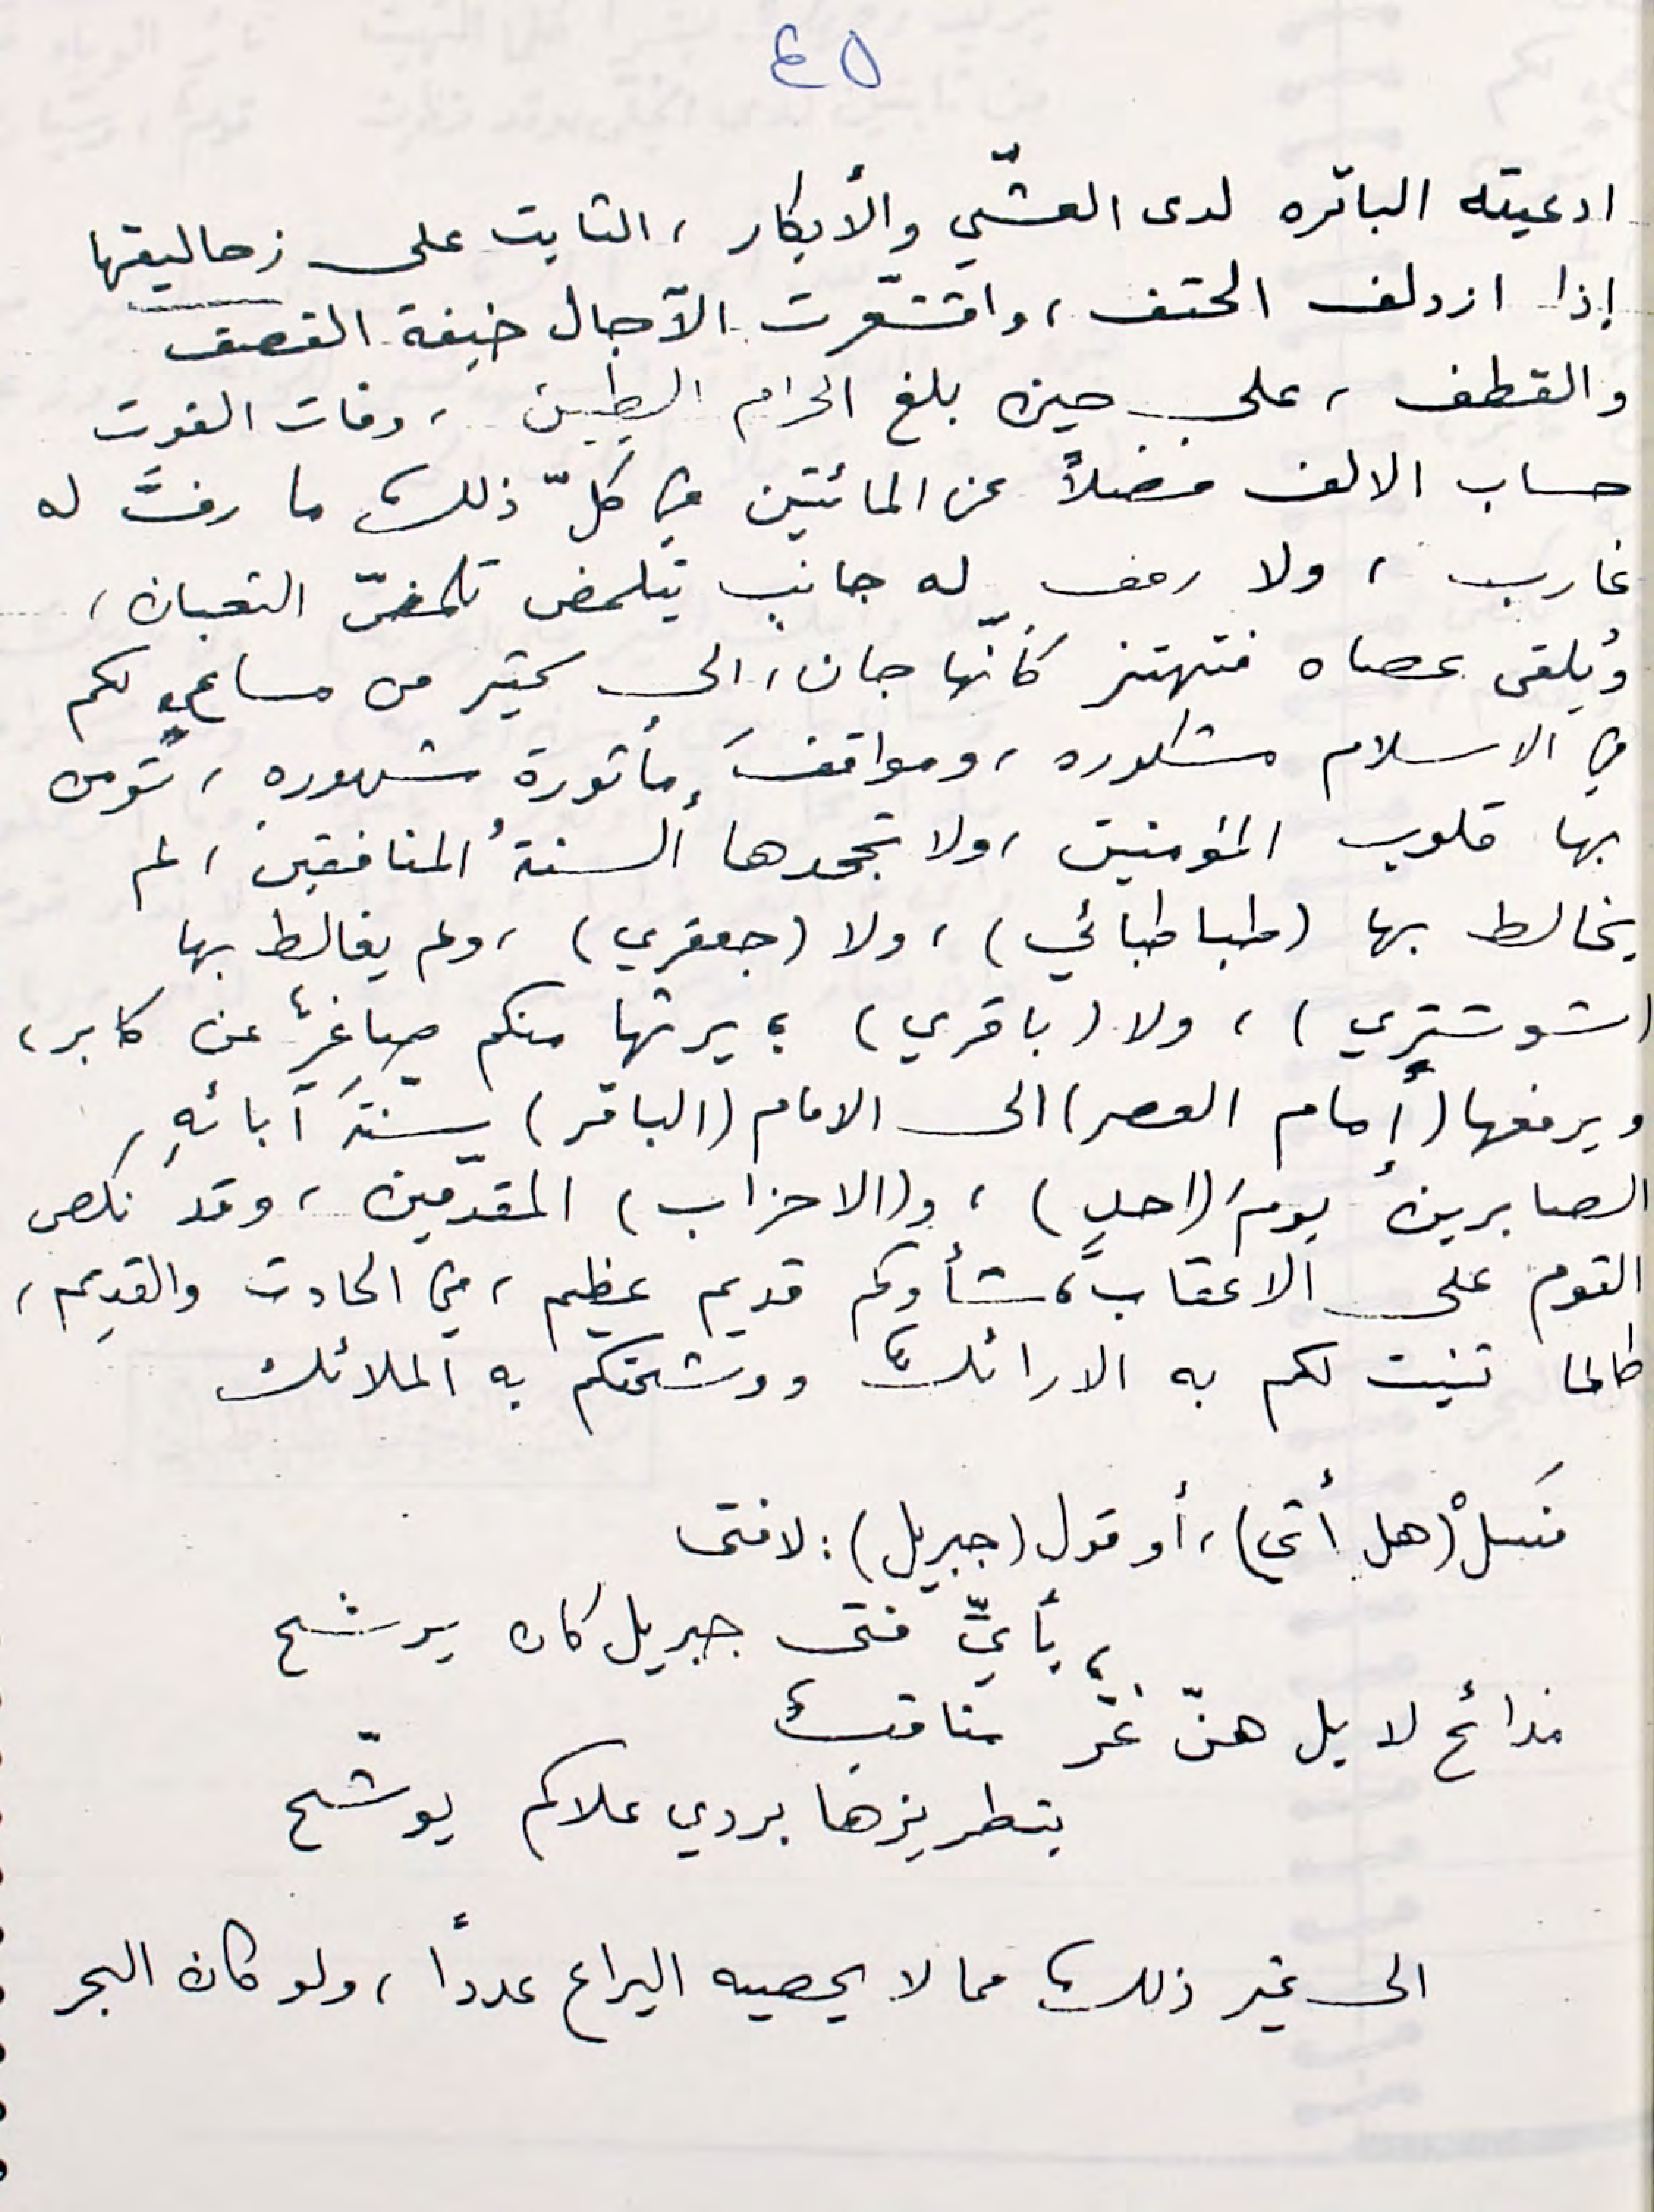 ٤٥
ادعيته الباتره لدى العشّي والأبكار ، الثابت على زحاليقها
إذا ازدلف الحتف ، واقشعّرت الآجال خيفة القصف
والقطف ، على حين بلغ الحزام الطبين ، وفات الفوت
حساب الالف فضلاً عن المائتين في كلّ ذلك ما رفَّ له
غارب ، ولا رهف له جانب يتلمض تلمضّ الثعبان ،
ويُلقى عصاه فتهتز كأنّها جان ، الى كثير من مساعي لكم
في الاسلام مشكوره ، ومواقفَ مأثورة مشهوره ، تؤمن
بها قلوب المؤمنين ، ولا تجحدها ألسنةُ المنافقين ، لم
يخالط بها (طباطبائي) ، ولا (جعفري) ، ولم يغالط بها
(شوشتري) ، ولا (باقري) ؛ يرثها منكم صاغرٌ عن كابر ،
ويرفعها (إمام العصر) الى الامام (الباقر) سنّةَ آبائهِ
الصابرين يومَ (احدٍ) ، و(الاحزاب) المقدّمين ، وقد نكص
القوم على الاعقاب ، شأوكم قديم عظيم ، في الحادث والقديم ،
طالما ثنيت لكم به الارائك ووشحتكم به الملائك
فَسلْ (هل أتى) ، أو قول (جبريل) : لا فتى
بأيِّ فتى جبريل كان يرشح
مدائح لا بل هنّ غرّ مناقب
بتطريزها بردي علاكم يوشّح
الى غير ذلك مما لا يحصيه اليراع عدداً ، ولو كان البحر